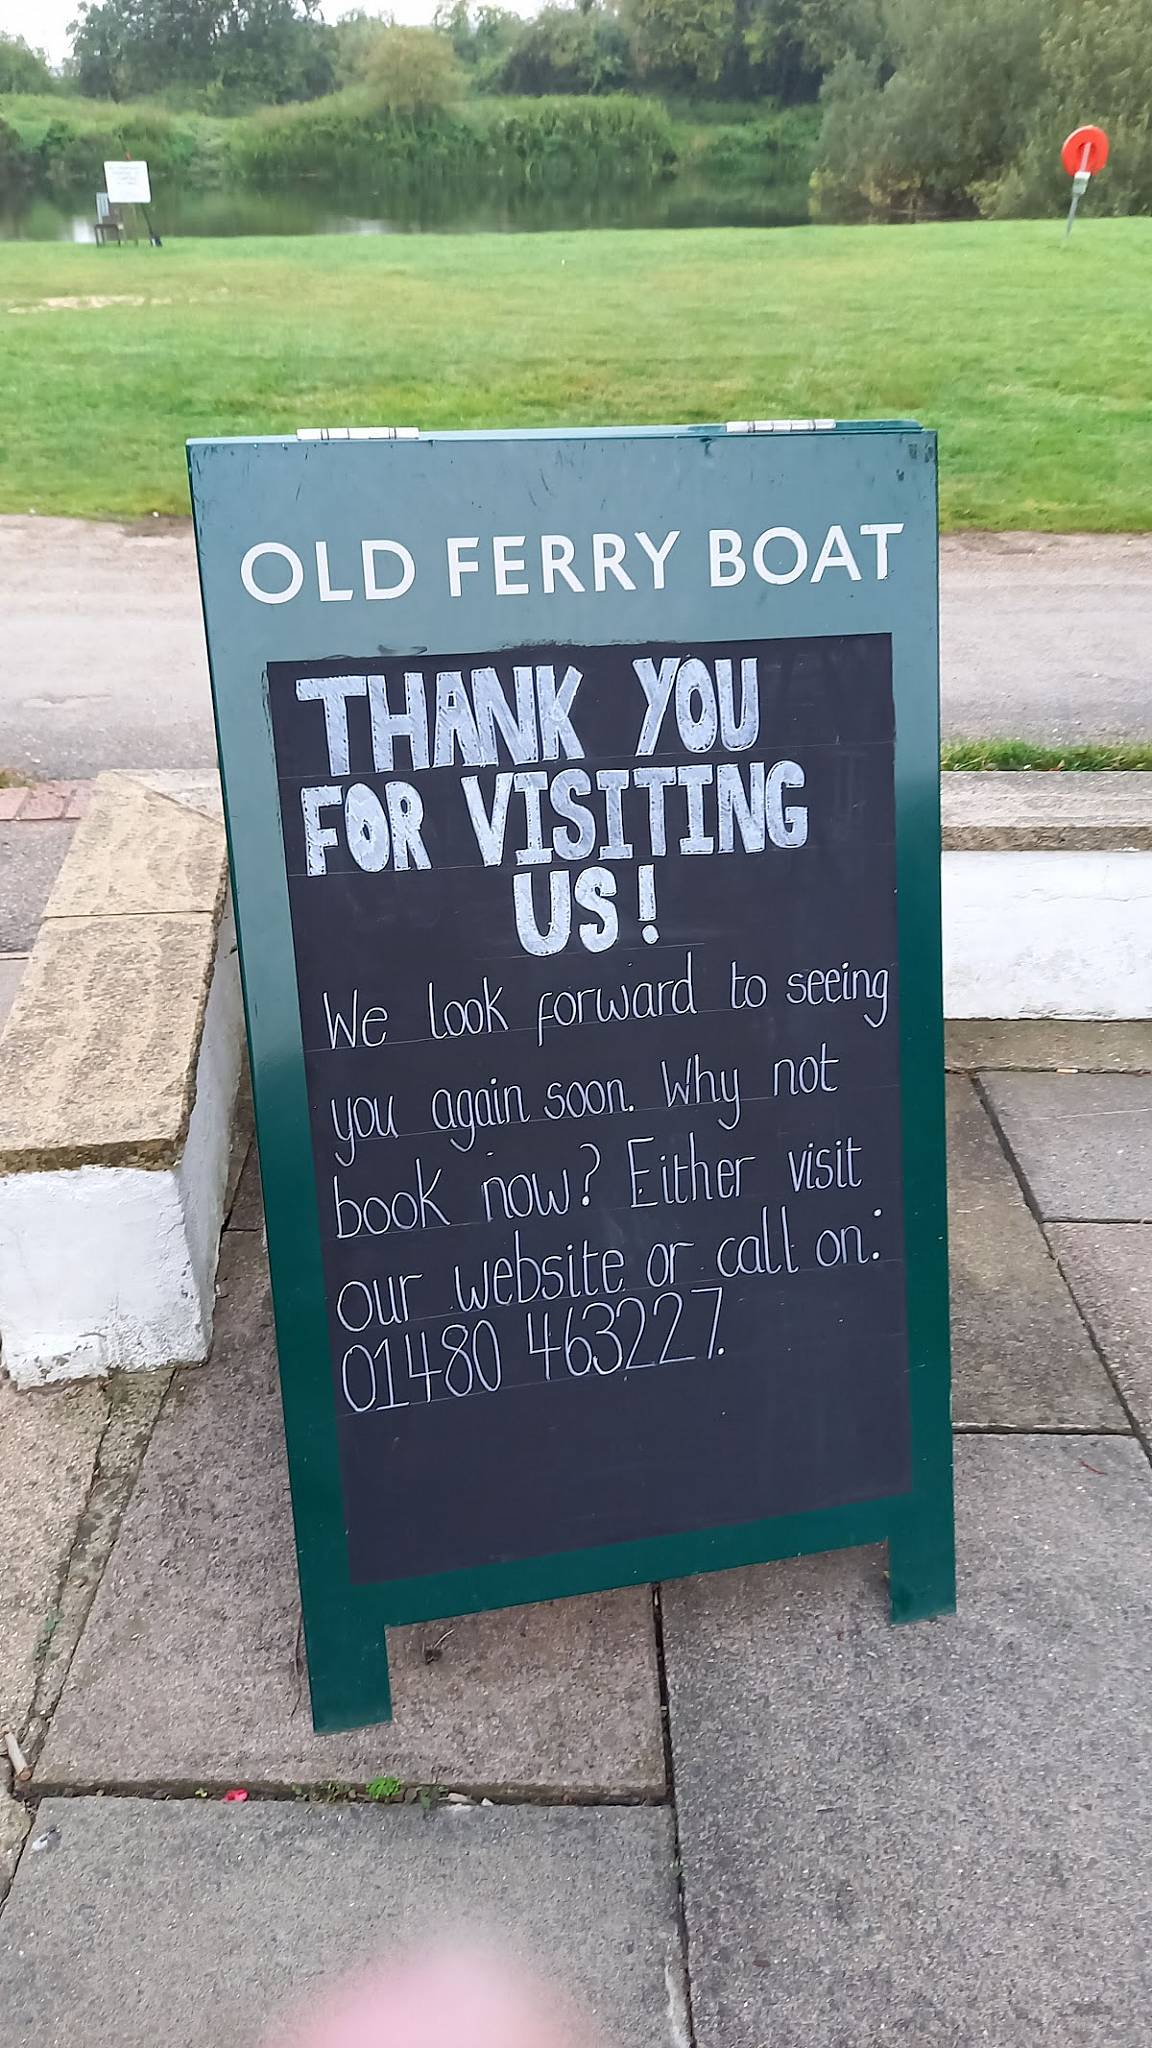 OLD FERRY BOAT
THANK YOU
FOR VISITING
US!
We look forward to seeing
you again soon. Why not
book now? Either visit
our website or call on:
01480 463227.